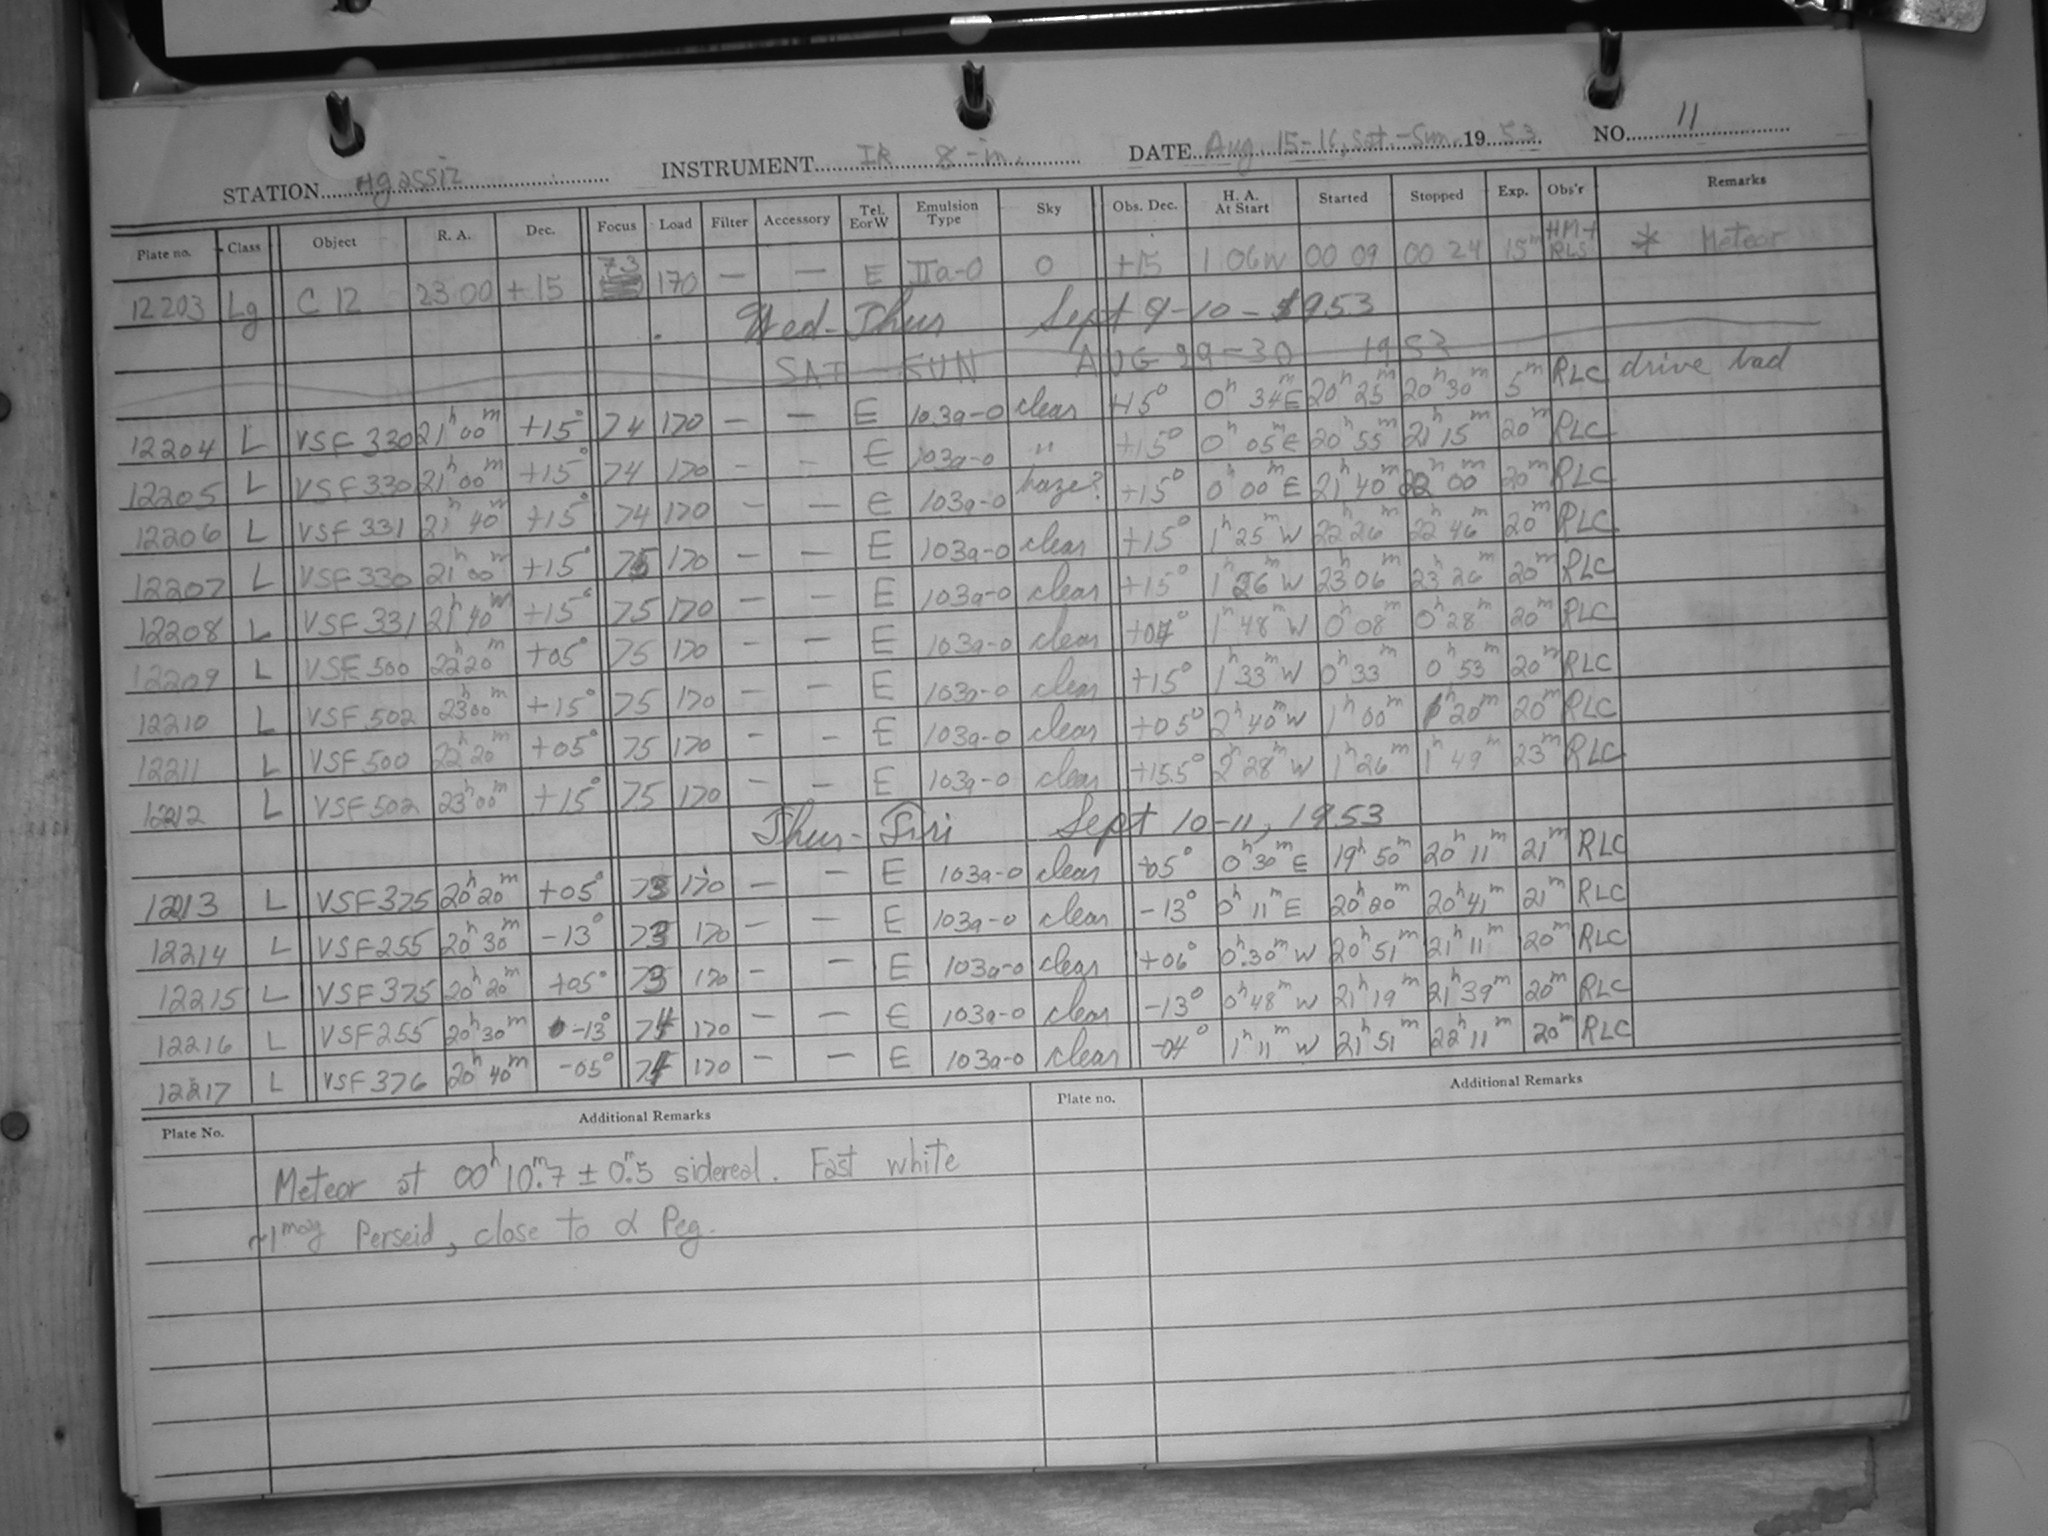 STATION Agassiz INSTRUMENT IR 8-in. DATE Aug. 15-16, Sat.-Sun. 1953. NO. 11
Plate no. Class Object R. A. Dec. Focus Load Filter Accessory Tel. E or W Emulsion Type Sky Obs. Dec. H. A. At Start Started Stopped Exp. Obs'r Remarks
12203 Lg C 12 23 00 +15 73 170 — — E IIa-O 0 +15 1 06W 00 09 00 24 15m HM+ RLS * Meteor
Wed-Thur Sept 9-10-1953
SAT SUN AUG 29-30 1953
12204 L VSF 330 21h 00m +15° 74 170 — — E 103a-O clear +15° 0h 34m E 20h 25m 20h 30m 5m RLC drive bad
12205 L VSF 330 21h 00m +15° 74 170 — — E 103a-O " +15° 0h 05m E 20h 55m 21h 15m 20m RLC
12206 L VSF 331 21h 40m +15° 74 170 — — E 103a-O haze? +15° 0h 00m E 21h 40m 22h 00m 20m RLC
12207 L VSF 330 21h 00m +15° 75 170 — — E 103a-O clear +15° 1h 25m W 22h 26m 22h 46m 20m RLC
12208 L VSF 331 21h 40m +15° 75 170 — — E 103a-O clear +15° 1h 26m W 23h 06m 23h 26m 20m RLC
12209 L VSF 500 22h 20m +05° 75 170 — — E 103a-O clear 1h 48m W 0h 08m 0h 28m 20m RLC
12210 L VSF 502 23h 00m +15° 75 170 — — E 103a-O clear +15° 1h 33m W 0h 33m 0h 53m 20m RLC
12211 L VSF 500 22h 20m +05° 75 170 — — E 103a-O clear +05° 2h 40m W 1h 00m 1h 20m 20m RLC
12212 L VSF 502 23h 00m +15° 75 170 — — E 103a-O clear +15.5° 2h 28m W 1h 26m 1h 49m 23m RLC
Thur-Fri Sept 10-11, 1953
12213 L VSF 375 20h 20m +05° 73 170 — — E 103a-O clear +05° 0h 30m E 19h 50m 20h 11m 21m RLC
12214 L VSF 255 20h 30m -13° 73 170 — — E 103a-O clear -13° 0h 11m E 20h 20m 20h 41m 21m RLC
12215 L VSF 375 20h 20m +05° 73 170 — — E 103a-O clear +06° 0h 30m W 20h 51m 21h 11m 20m RLC
12216 L VSF 255 20h 30m -13° 74 170 — — E 103a-O clear -13° 0h 48m W 21h 19m 21h 39m 20m RLC
12217 L VSF 376 20h 40m -05° 74 170 — — E 103a-O clear -04° 1h 11m W 21h 51m 22h 11m 20m RLC
Plate No. Additional Remarks Plate no. Additional Remarks
Meteor at 00h 10m.7 ± 0m.5 sidereal. Fast white
~1mag Perseid, close to α Peg.